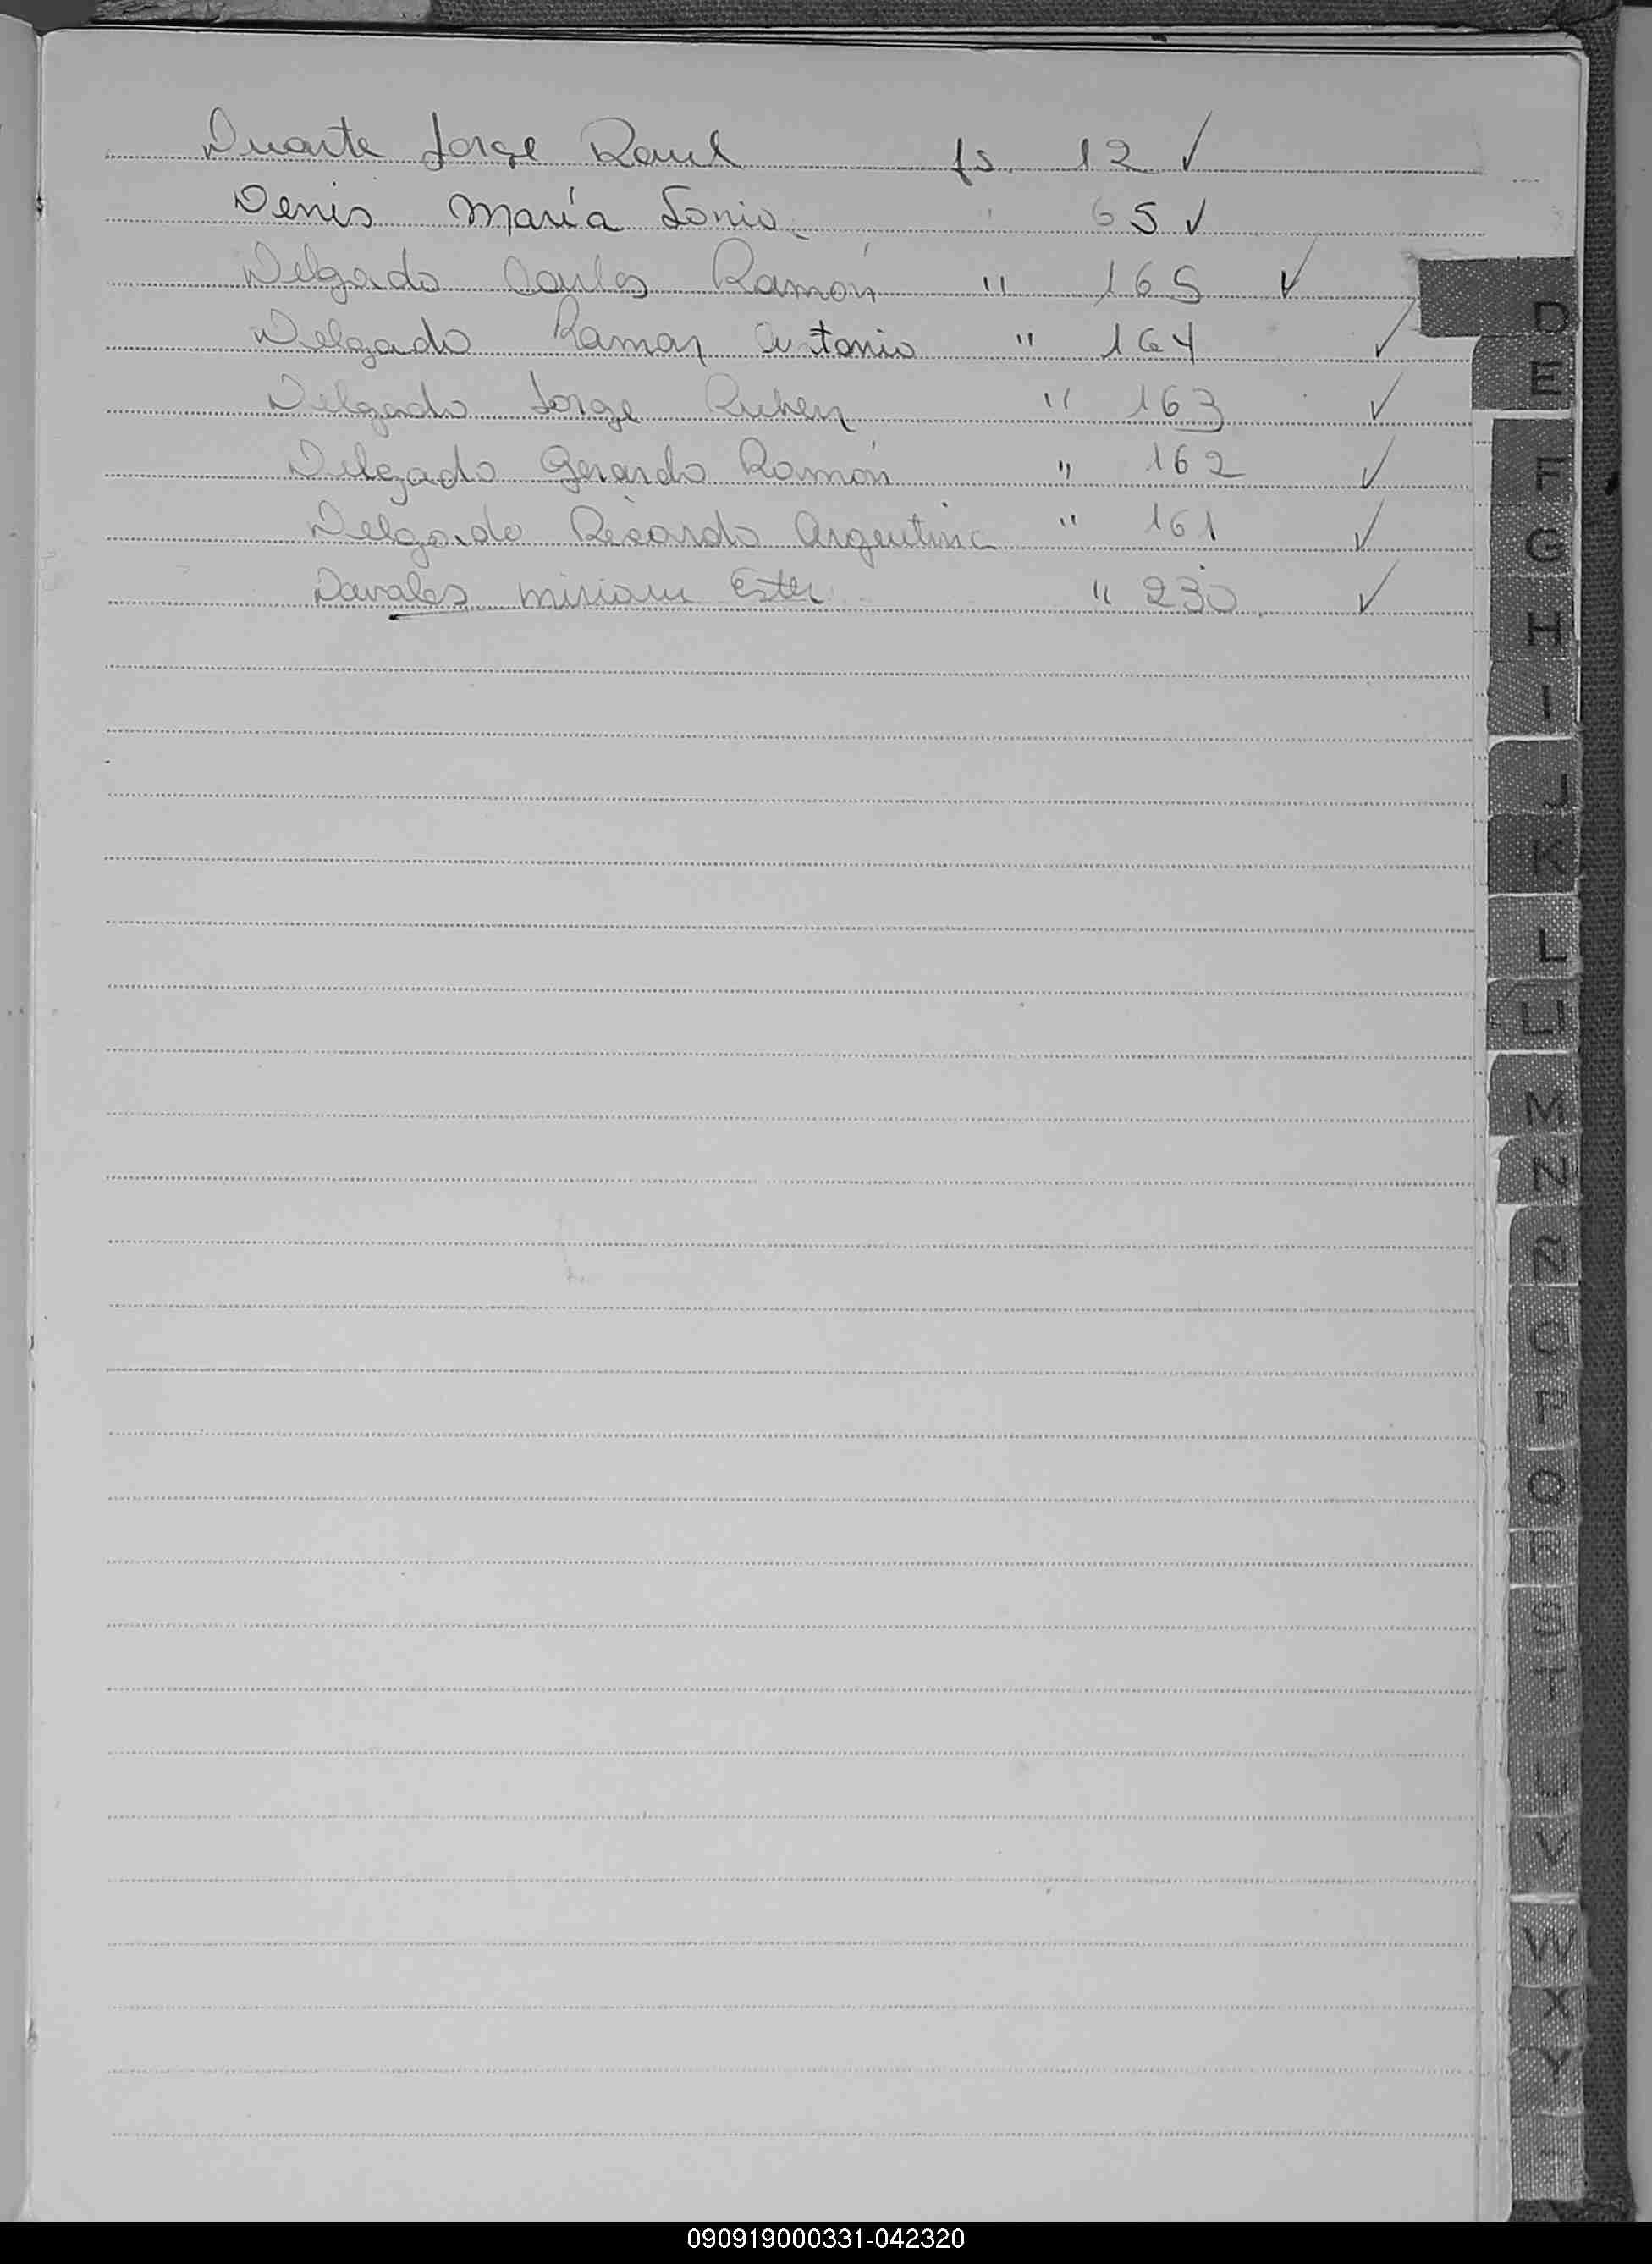 Duarte Jorge Raul fs. 12 ✓
Denis María Sonia 65 ✓
Delgado Carlos Ramón " 165 ✓
Delgado Ramon Antonio " 164 ✓
Delgado Jorge Ruben " 163 ✓
Delgado Gerardo Ramón " 162 ✓
Delgado Ricardo Argentino " 161 ✓
Davalos Miriam Ester " 230 ✓
D
E
F
G
H
I
J
K
L
LL
M
N
Ñ
O
P
Q
R
S
T
U
V
W
X
Y
090919000331-042320